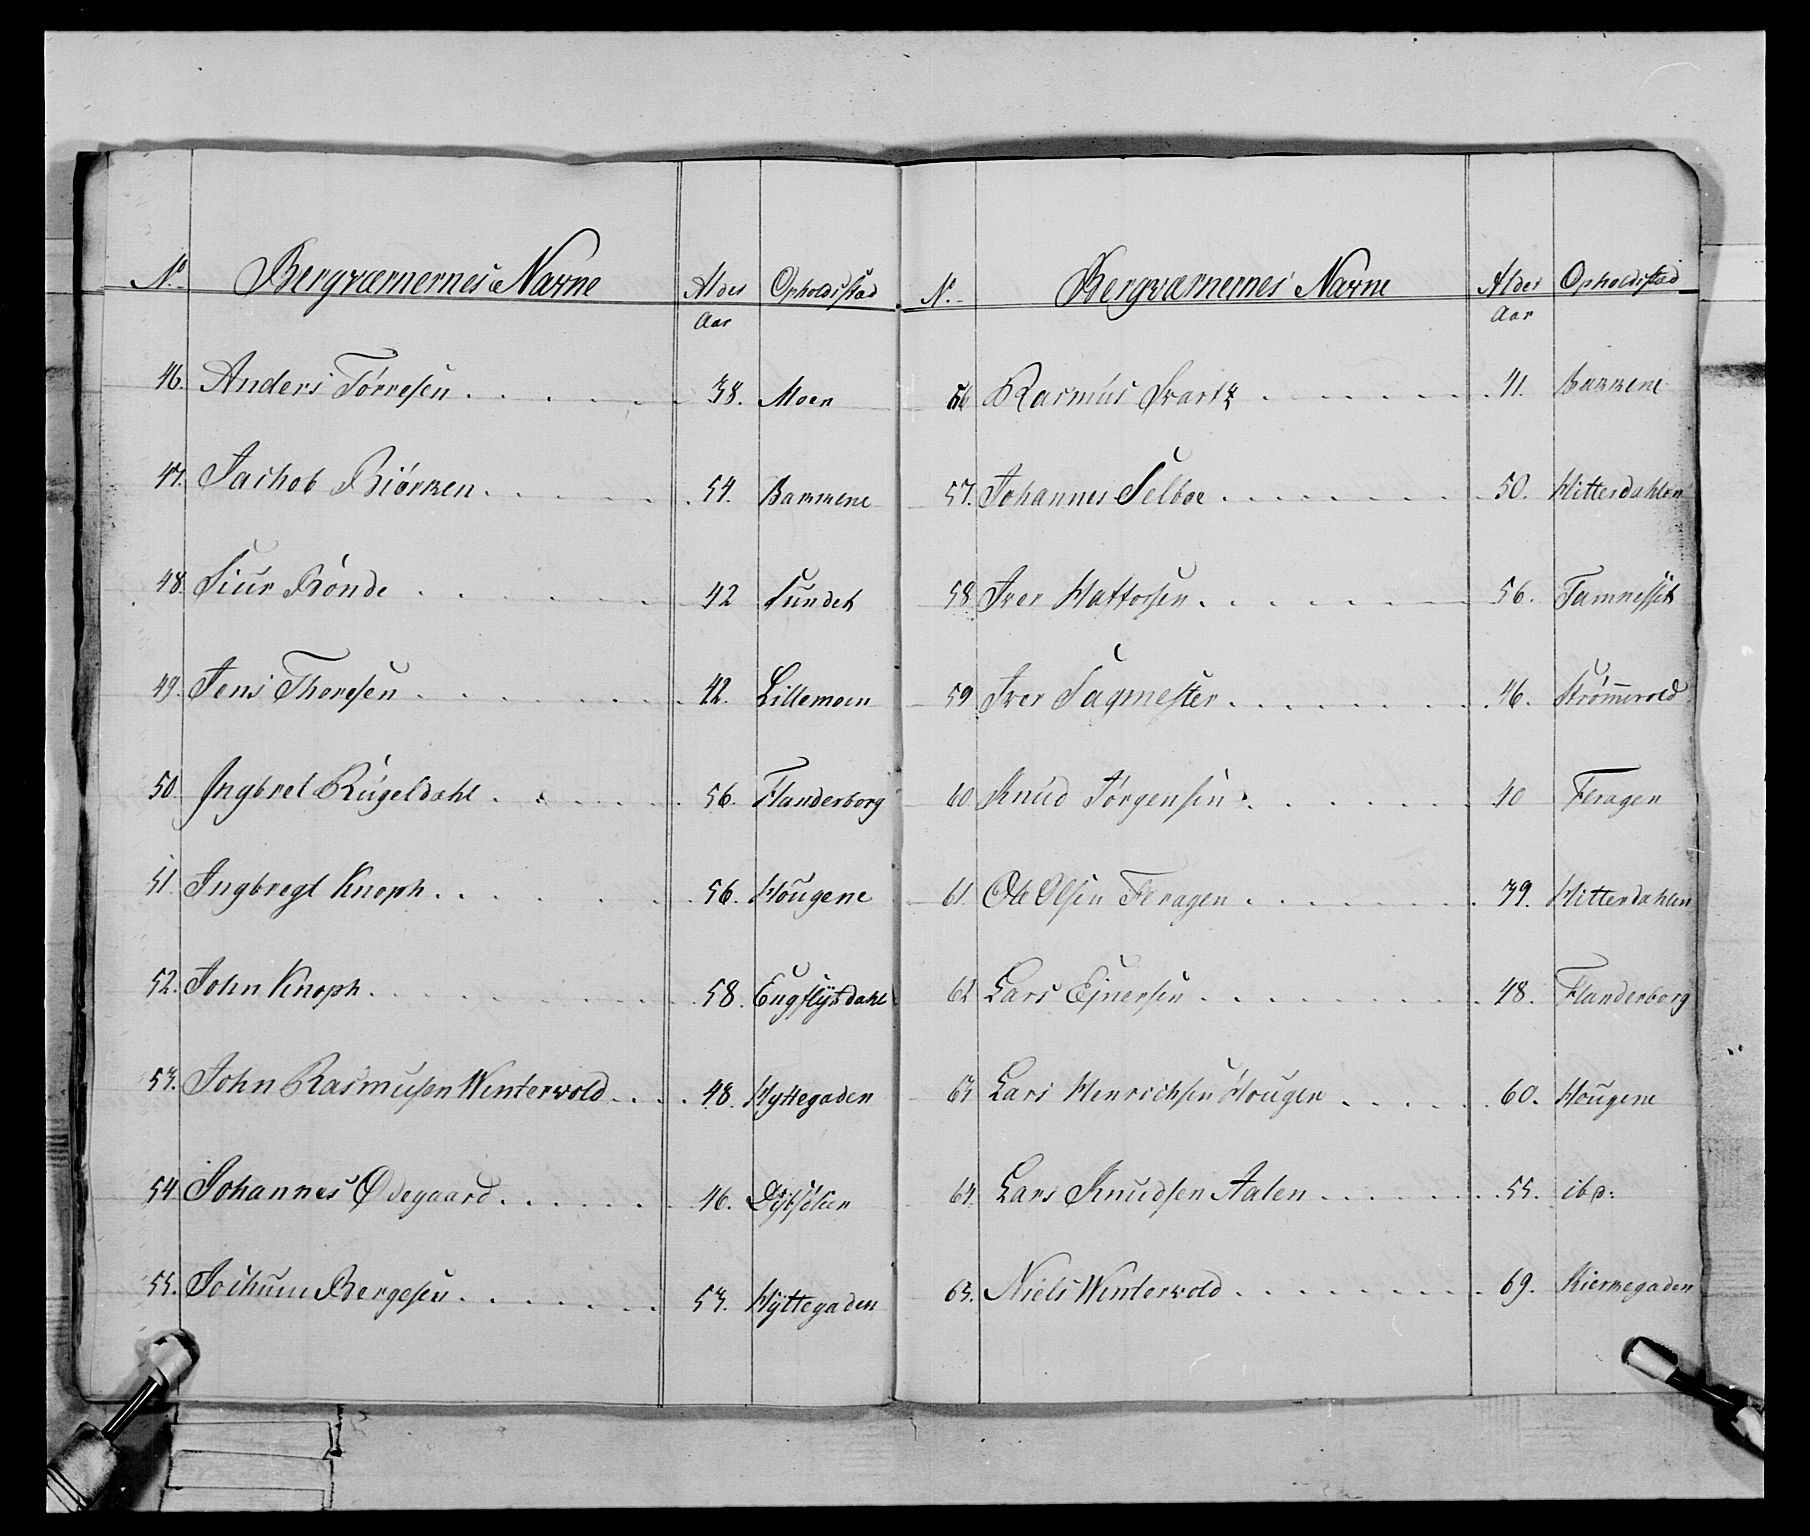 No. Bergværnernes Navne Alder Opholdsstæd
Aar
46. Anders Tørresen 38. Moen
47. Jachob Biørken 54. Bakkene
48. Siur Bønde 42 Sundet
49. Jens Thoresen 42. Lillemoen
50. Ingbret Rugeldahl 56. Flanderborg
51. Ingbregt Knoph 56. Hougene
52. John Knoph 58.
53. John Rasmusen Winterwold 48. Hyttegaden
54. Johannes Ødegaard 46.
55. Jochum Bergesen 53. Hyttegaden
No. Bergværnernes Navne Alder Opholdsstæd
Aar
56 Rasmus Svartz 41. Bakkene
57. Johannes Selboe 50. Hitterdahlen
58. Iver Hattosen 56. Tamnesset
59 Iver Sagmester 46. Strømmevold
60 Knud Jørgensen 40 Feragen
61. Ole Olsen Feragen 39. Hitterdahlen
62 Lars Ejnersen 48. Flanderborg
63 Lars Henrichsen Hougen 60. Hougene
64. Lars Knudsen Aalen 55. ibd:
65. Niels Winterwold 69. Kierkegaden